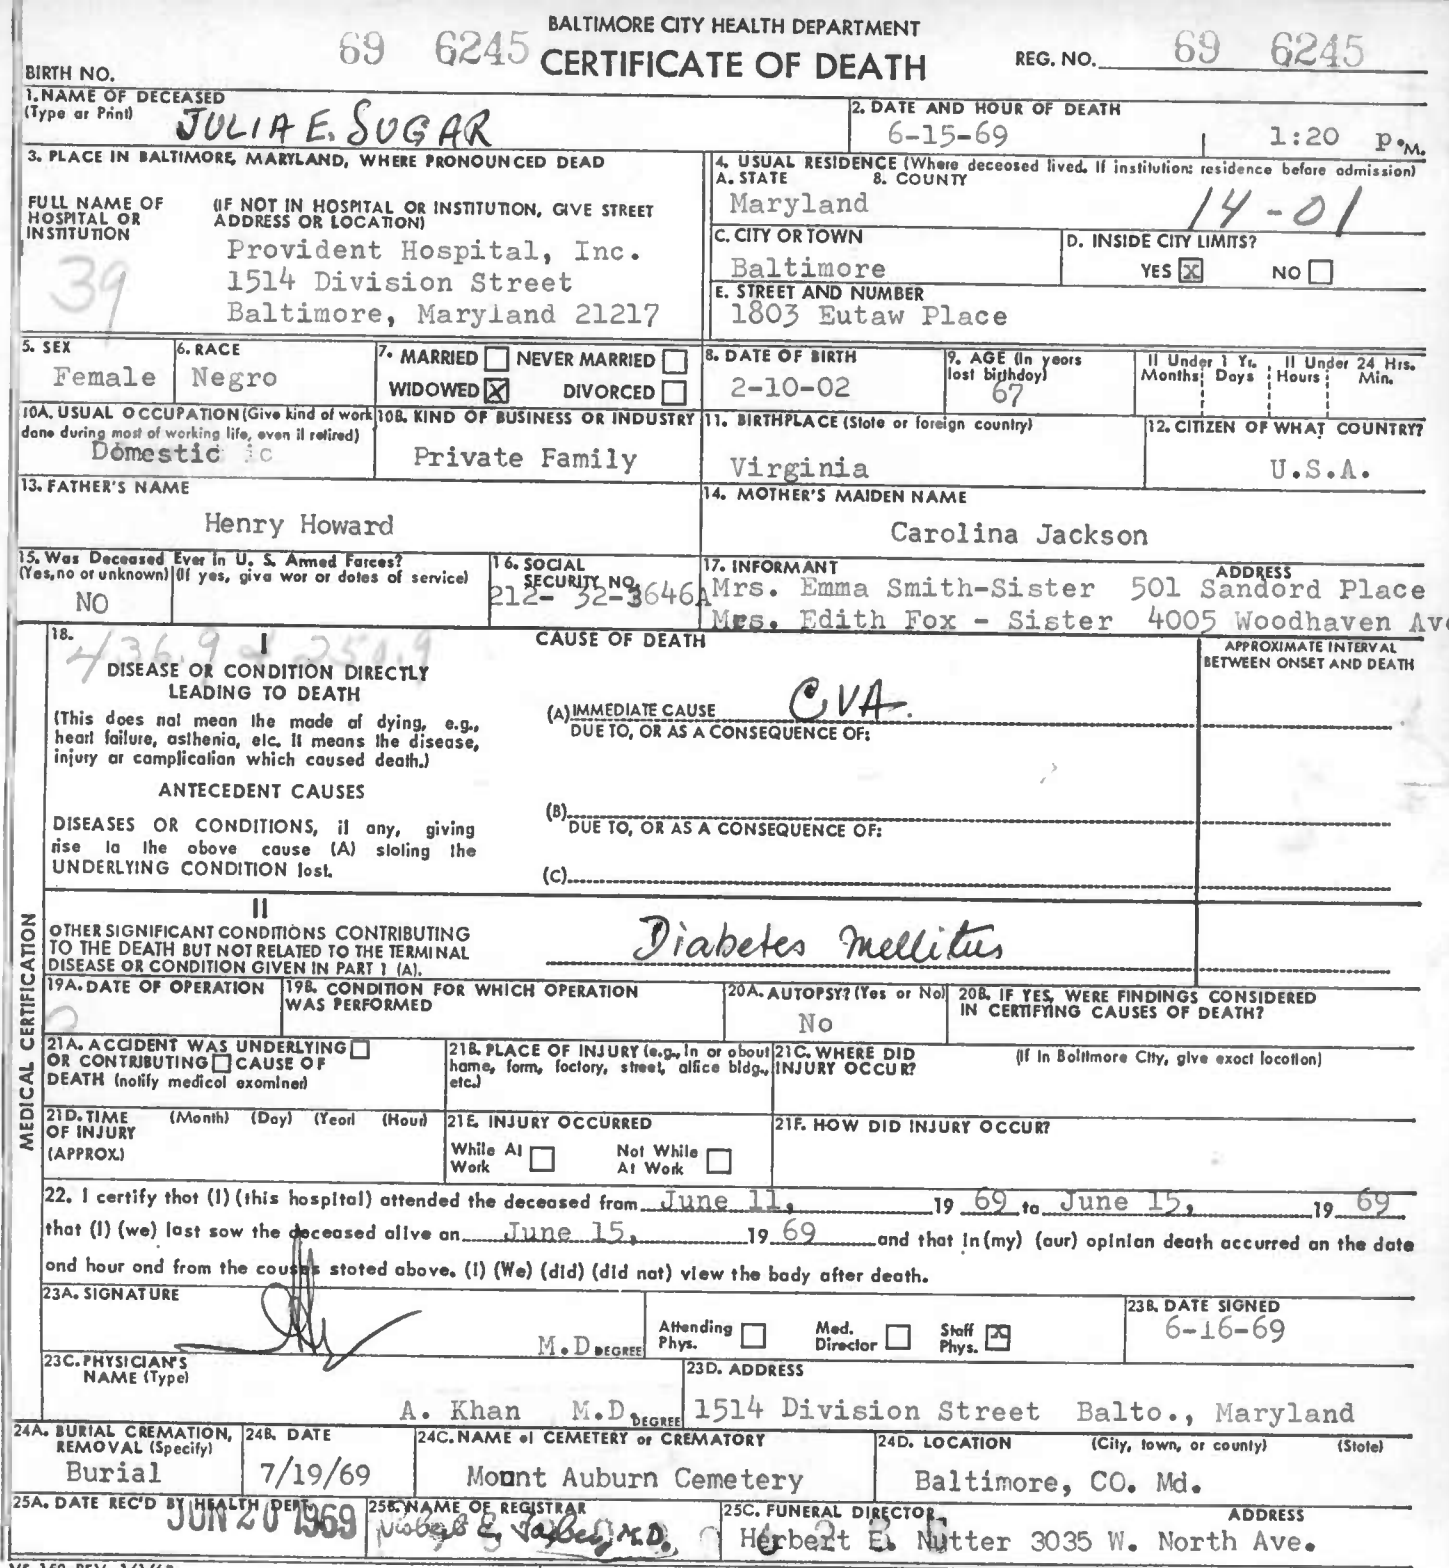 BALTIMORE CITY HEALTH DEPARTMENT
69 6245 CERTIFICATE OF DEATH REG. NO. 69 6245
BIRTH NO.
1. NAME OF DECEASED
(Type or Print) JULIA E. SUGAR
2. DATE AND HOUR OF DEATH
6-15-69 1:20 p.M.
3. PLACE IN BALTIMORE, MARYLAND, WHERE PRONOUNCED DEAD
FULL NAME OF HOSPITAL OR INSTITUTION
(IF NOT IN HOSPITAL OR INSTITUTION, GIVE STREET
ADDRESS OR LOCATION)
39
Provident Hospital, Inc.
1514 Division Street
Baltimore, Maryland 21217
4. USUAL RESIDENCE (Where deceased lived. If institution: residence before admission)
A. STATE B. COUNTY
Maryland 14-01
C. CITY OR TOWN
Baltimore
D. INSIDE CITY LIMITS?
YES X NO
E. STREET AND NUMBER
1803 Eutaw Place
5. SEX
Female
6. RACE
Negro
7. MARRIED NEVER MARRIED
WIDOWED X DIVORCED
8. DATE OF BIRTH
2-10-02
9. AGE (In years
last birthday)
67
If Under 1 Yr. If Under 24 Hrs.
Months Days Hours Min.
10A. USUAL OCCUPATION (Give kind of work
done during most of working life, even if retired)
Domestic ic
10B. KIND OF BUSINESS OR INDUSTRY
Private Family
11. BIRTHPLACE (State or foreign country)
Virginia
12. CITIZEN OF WHAT COUNTRY?
U.S.A.
13. FATHER'S NAME
Henry Howard
14. MOTHER'S MAIDEN NAME
Carolina Jackson
15. Was Deceased Ever in U. S. Armed Forces?
(Yes, no or unknown) (If yes, give war or dates of service)
NO
16. SOCIAL
SECURITY NO.
212-32-3646A
17. INFORMANT ADDRESS
Mrs. Emma Smith-Sister 501 Sandord Place
Mrs. Edith Fox - Sister 4005 Woodhaven Ave
MEDICAL CERTIFICATION
18. I CAUSE OF DEATH
436.9 & 250.9
APPROXIMATE INTERVAL
BETWEEN ONSET AND DEATH
DISEASE OR CONDITION DIRECTLY
LEADING TO DEATH
(This does not mean the mode of dying, e.g.,
heart failure, asthenia, etc. It means the disease,
injury or complication which caused death.)
(A) IMMEDIATE CAUSE CVA.
DUE TO, OR AS A CONSEQUENCE OF:
ANTECEDENT CAUSES
DISEASES OR CONDITIONS, if any, giving
rise to the above cause (A) stating the
UNDERLYING CONDITION last.
(B)
DUE TO, OR AS A CONSEQUENCE OF:
(C)
II
OTHER SIGNIFICANT CONDITIONS CONTRIBUTING
TO THE DEATH BUT NOT RELATED TO THE TERMINAL
DISEASE OR CONDITION GIVEN IN PART 1 (A).
Diabetes mellitus
19A. DATE OF OPERATION
19B. CONDITION FOR WHICH OPERATION
WAS PERFORMED
20A. AUTOPSY? (Yes or No)
No
20B. IF YES, WERE FINDINGS CONSIDERED
IN CERTIFYING CAUSES OF DEATH?
21A. ACCIDENT WAS UNDERLYING
OR CONTRIBUTING CAUSE OF
DEATH (notify medical examiner)
21B. PLACE OF INJURY (e.g., in or about
home, farm, factory, street, office bldg.,
etc.)
21C. WHERE DID
INJURY OCCUR?
(If in Baltimore City, give exact location)
21D. TIME (Month) (Day) (Year) (Hour)
OF INJURY
(APPROX.)
21E. INJURY OCCURRED
While At
Work
Not While
At Work
21F. HOW DID INJURY OCCUR?
22. I certify that (I) (this hospital) attended the deceased from June 11, 19 69 to June 15, 19 69
that (I) (we) last saw the deceased alive on June 15, 19 69 and that in (my) (our) opinion death occurred on the date
and hour and from the causes stated above. (I) (We) (did) (did not) view the body after death.
23A. SIGNATURE
M.D. DEGREE
Attending
Phys.
Med.
Director
Staff
Phys. X
23B. DATE SIGNED
6-16-69
23C. PHYSICIAN'S
NAME (Type)
A. Khan M.D. DEGREE
23D. ADDRESS
1514 Division Street Balto., Maryland
24A. BURIAL CREMATION,
REMOVAL (Specify)
Burial
24B. DATE
7/19/69
24C. NAME of CEMETERY or CREMATORY
Mount Auburn Cemetery
24D. LOCATION (City, town, or county) (State)
Baltimore, CO. Md.
25A. DATE REC'D BY HEALTH DEPT.
JUN 20 1969
25B. NAME OF REGISTRAR
Robert E. Farber, M.D.
25C. FUNERAL DIRECTOR ADDRESS
Herbert E. Nutter 3035 W. North Ave.